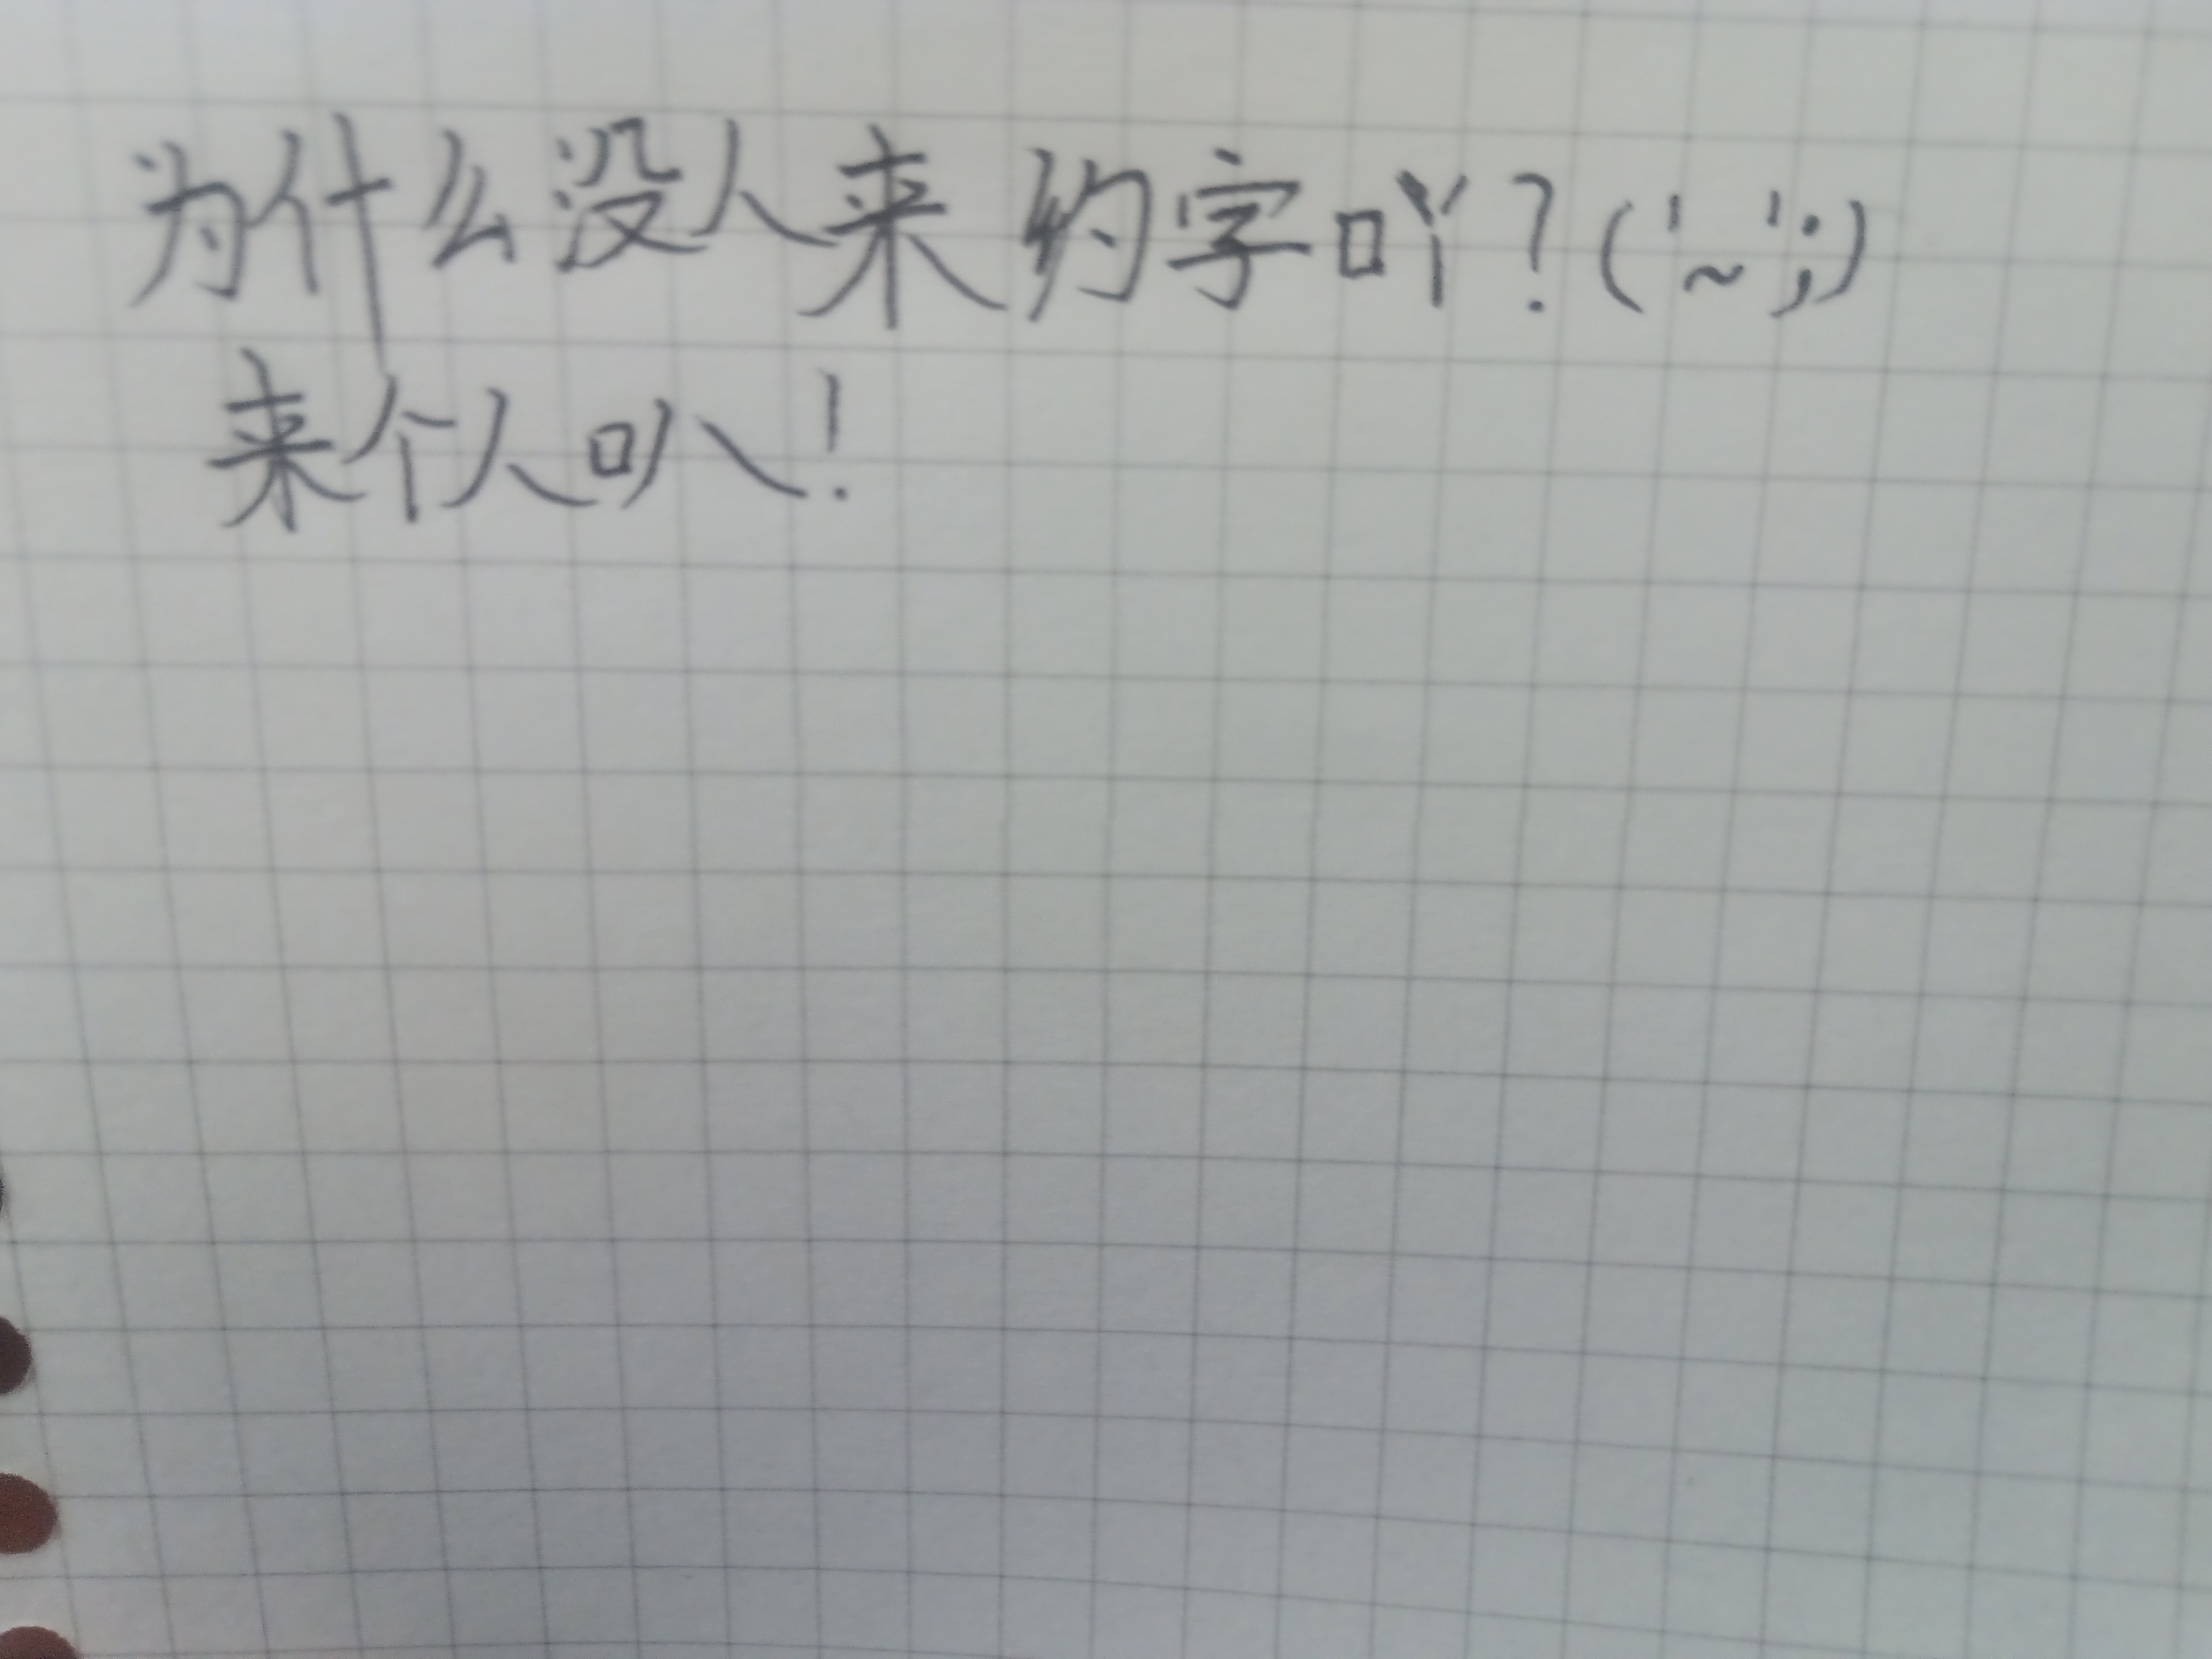 为什么没人来约字吖?('~';)
来个人叭!